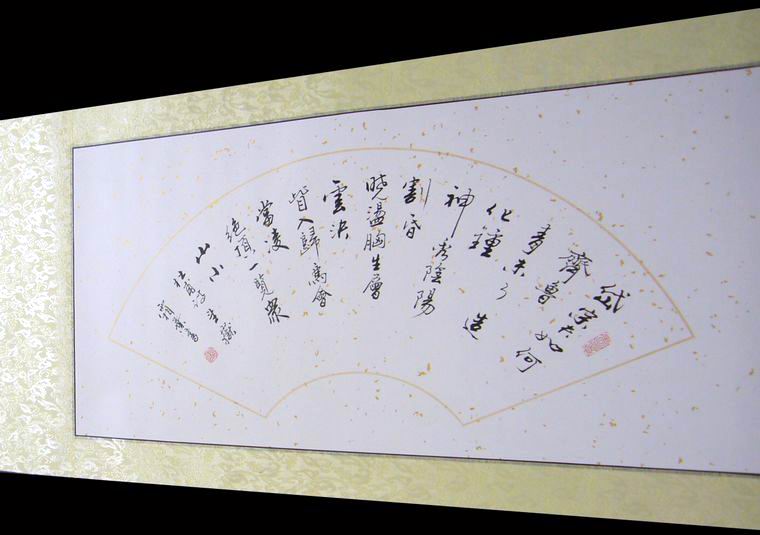 岱宗夫如何
齊魯
青未了造
化鍾
神秀陰陽
割昏
曉盪胸生層
雲決
眥入歸鳥會
當凌
絕頂一覽眾
山小
杜甫詩望嶽